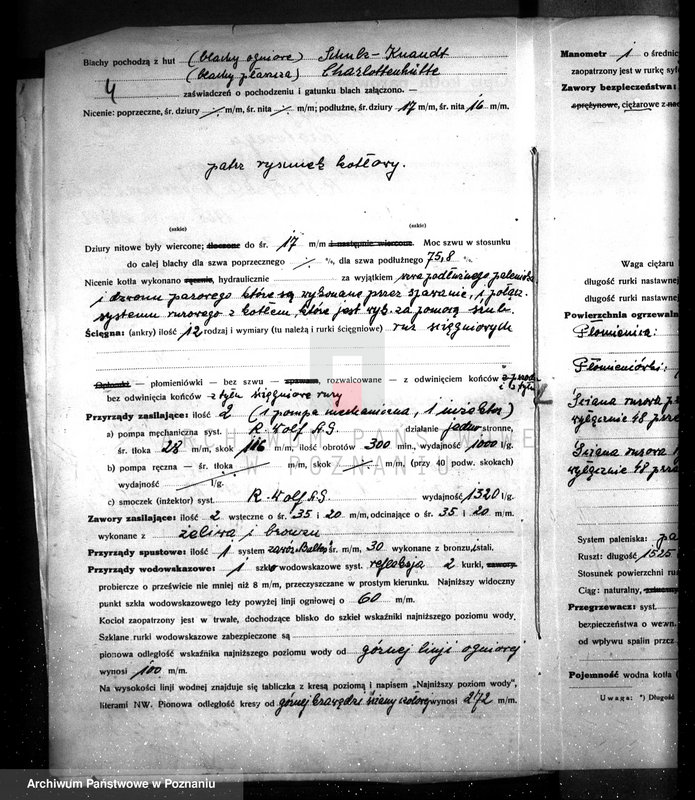 Blachy pochodzą z hut (blachy ogniowe) Schulz-Knaudt
(blachy płaszcza) Charlottenhütte
4 zaświadczeń o pochodzeniu i gatunku blach załączono.
Nicenie: poprzeczne, śr. dziury m/m, śr. nita m/m; podłużne, śr. dziury 17 m/m, śr. nita 16 m/m.
patrz rysunek kotłowy.
(szkic) (szkic)
Dziury nitowe były wiercone; tłoczone do śr. 17 m/m i następnie wiercone. Moc szwu w stosunku
do całej blachy dla szwa poprzecznego %, dla szwa podłużnego 75,8 %.
Nicenie kotła wykonano ręcznie, hydraulicznie za wyjątkiem podłużnego paleniska
i dzwonu parowego które są wykonane przez spawanie, i połącz.
systemu rurowego z kotłem, które jest wyk. za pomocą śrub.
Ścięgna: (ankry) ilość 12 rodzaj i wymiary (tu należą i rurki ścięgniowe) rur ścięgniowych
płomieniówki — bez szwu — spawane, rozwalcowane — z odwinięciem końców z przodu
bez odwinięcia końców z tyłu ścięgniowe rury i z tyłu
Przyrządy zasilające: ilość 2 (1 pompa mechaniczna, 1 inżektor)
a) pompa męchaniczna syst. R. Wolf A.G. działanie jednostronne,
śr. tłoka 28 m/m, skok 116 m/m, ilość obrotów 300 min., wydajność 1000 l/g.
b) pompa ręczna — śr. tłoka m/m, skok m/m, (przy 40 podw. skokach)
wydajność l/g.
c) smoczek (inżektor) syst. R. Wolf A.G. wydajność 1320 l/g.
Zawory zasilające: ilość 2 wsteczne o śr. 35 i 20 m/m, odcinające o śr. 35 i 20 m/m.
wykonane z żeliwa i bronzu
Przyrządy spustowe: ilość 1 system zawór śr. m/m, 30 wykonane z bronzu, stali.
Przyrządy wodowskazowe: 1 szkło wodowskazowe syst. refleksja 2 kurki, zawory
probiercze o prześwicie nie mniej niż 8 m/m, przeczyszczane w prostym kierunku. Najniższy widoczny
punkt szkła wodowskazowego leży powyżej linji ogniowej o 60 m/m.
Kocioł zaopatrzony jest w trwałe, dochodzące blisko do szkieł wskaźniki najniższego poziomu wody.
Szklane rurki wodowskazowe zabezpieczone są
pionowa odległość wskaźnika najniższego poziomu wody od górnej linji ogniowej
wynosi 100 m/m.
Na wysokości linji wodnej znajduje się tabliczka z kresą poziomą i napisem „Najniższy poziom wody",
literami NW. Pionowa odległość kresy od górnej krawędzi ściany wynosi 272 m/m.
Manometr 1 o średnic
zaopatrzony jest w rurkę syf
Zawory bezpieczeństwa:
sprężynowe, ciężarowe z
Waga ciężaru
długość rurki nastawnej
długość rurki nastawnej
Powierzchnia ogrzewalna
Płomienica:
Płomieniówki:
Ściana rurowa p
wyłącznie 48 prze
Ściana rurowa
wyłącznie 48 prze
System paleniska: pa
Ruszt: długość 1525
Stosunek powierzchni rus
Ciąg: naturalny,
Przegrzewacz: syst.
bezpieczeństwa o wewn.
od wpływu spalin przez
Pojemność wodna kotła
Uwaga: *) Długość
ARCHIWUM PAŃSTWOWE
W POZNANIU
Archiwum Państwowe w Poznaniu